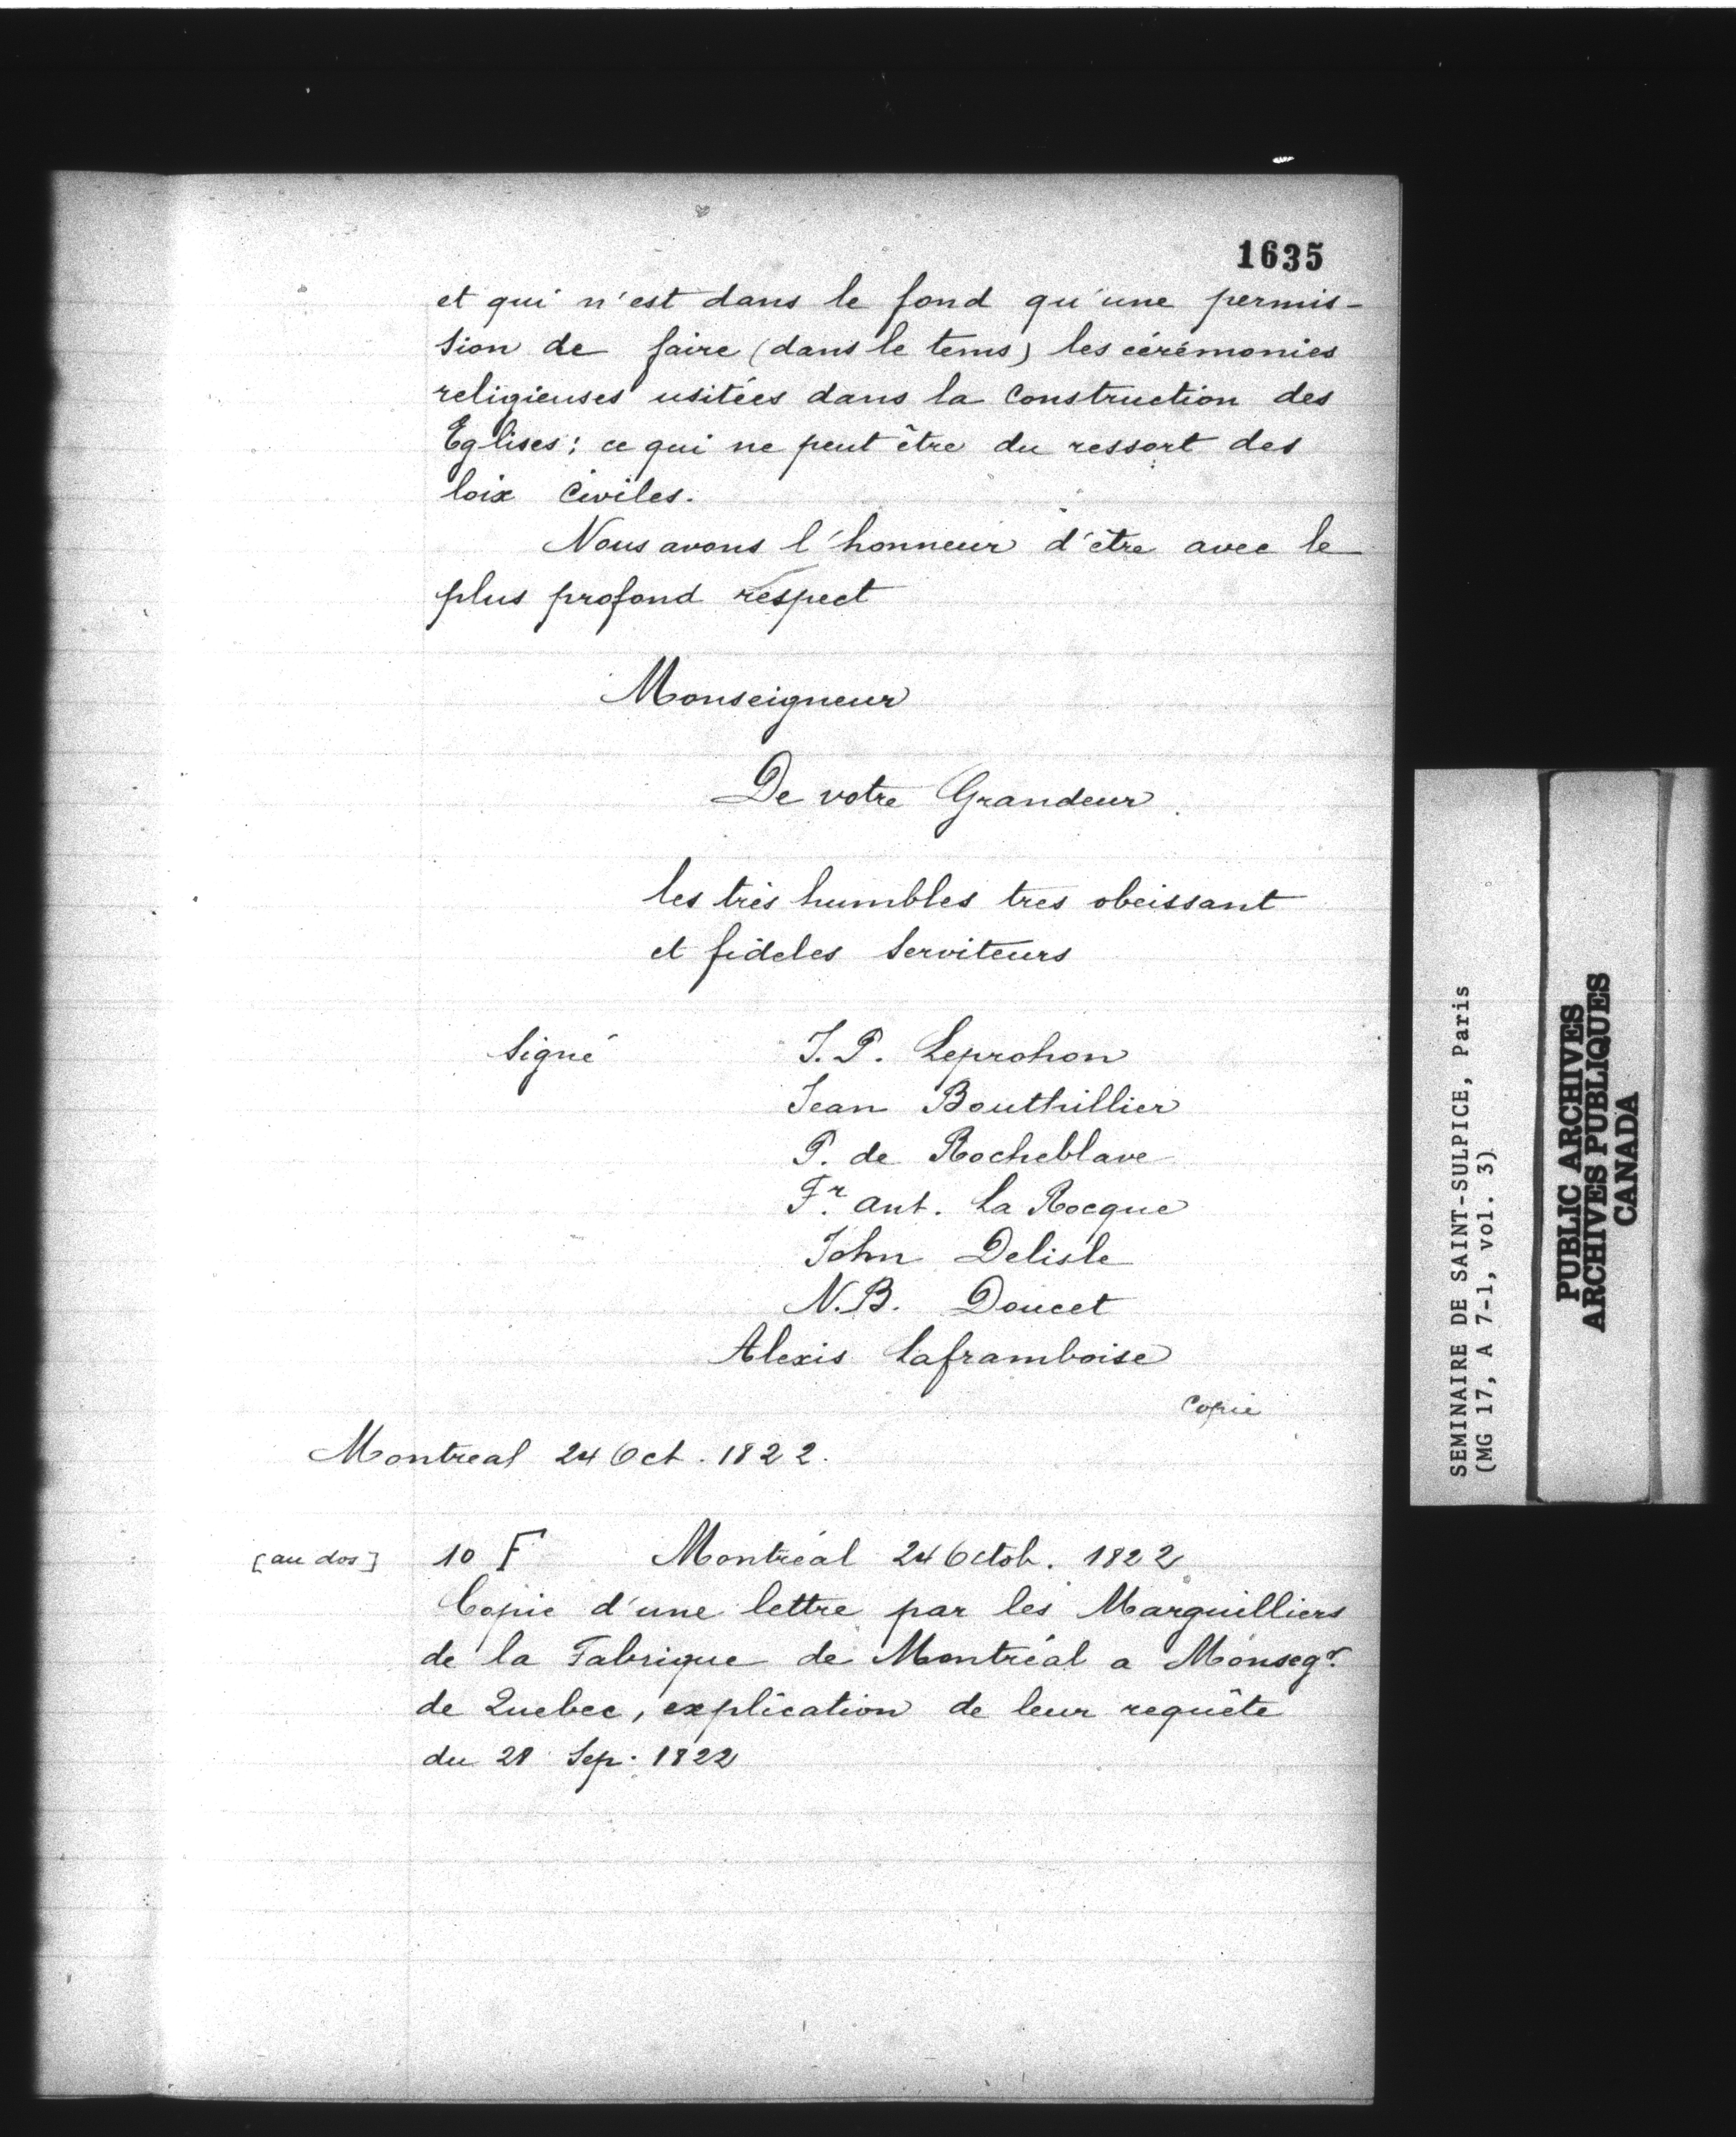 1635
et qui n'est dans le fond qu'une permis-
sion de faire (dans le tems) les cérémonies
religieuses usitées dans la construction des
Eglises; ce qui ne peut être du ressort des
loix civiles.
Nous avons l'honneur d'être avec le
plus profond respect
Monseigneur
De votre Grandeur
les très humbles tres obeissant
et fideles serviteurs
Signé J. P. Leprohon
Jean Bouthillier
P. de Rocheblave
Fr. ant. La Rocque
John Delisle
N.B. Doucet
Alexis Laframboise
Copie
Montreal 24 Oct. 1822.
[au dos] 10 F Montréal 24 Octob. 1822
Copie d'une lettre par les Marguilliers
de la Fabrique de Montréal a Monsegr.
de Quebec, explication de leur requête
du 28 Sep. 1822
SEMINAIRE DE SAINT-SULPICE, Paris
(MG 17, A 7-1, vol. 3)
PUBLIC ARCHIVES
ARCHIVES PUBLIQUES
CANADA